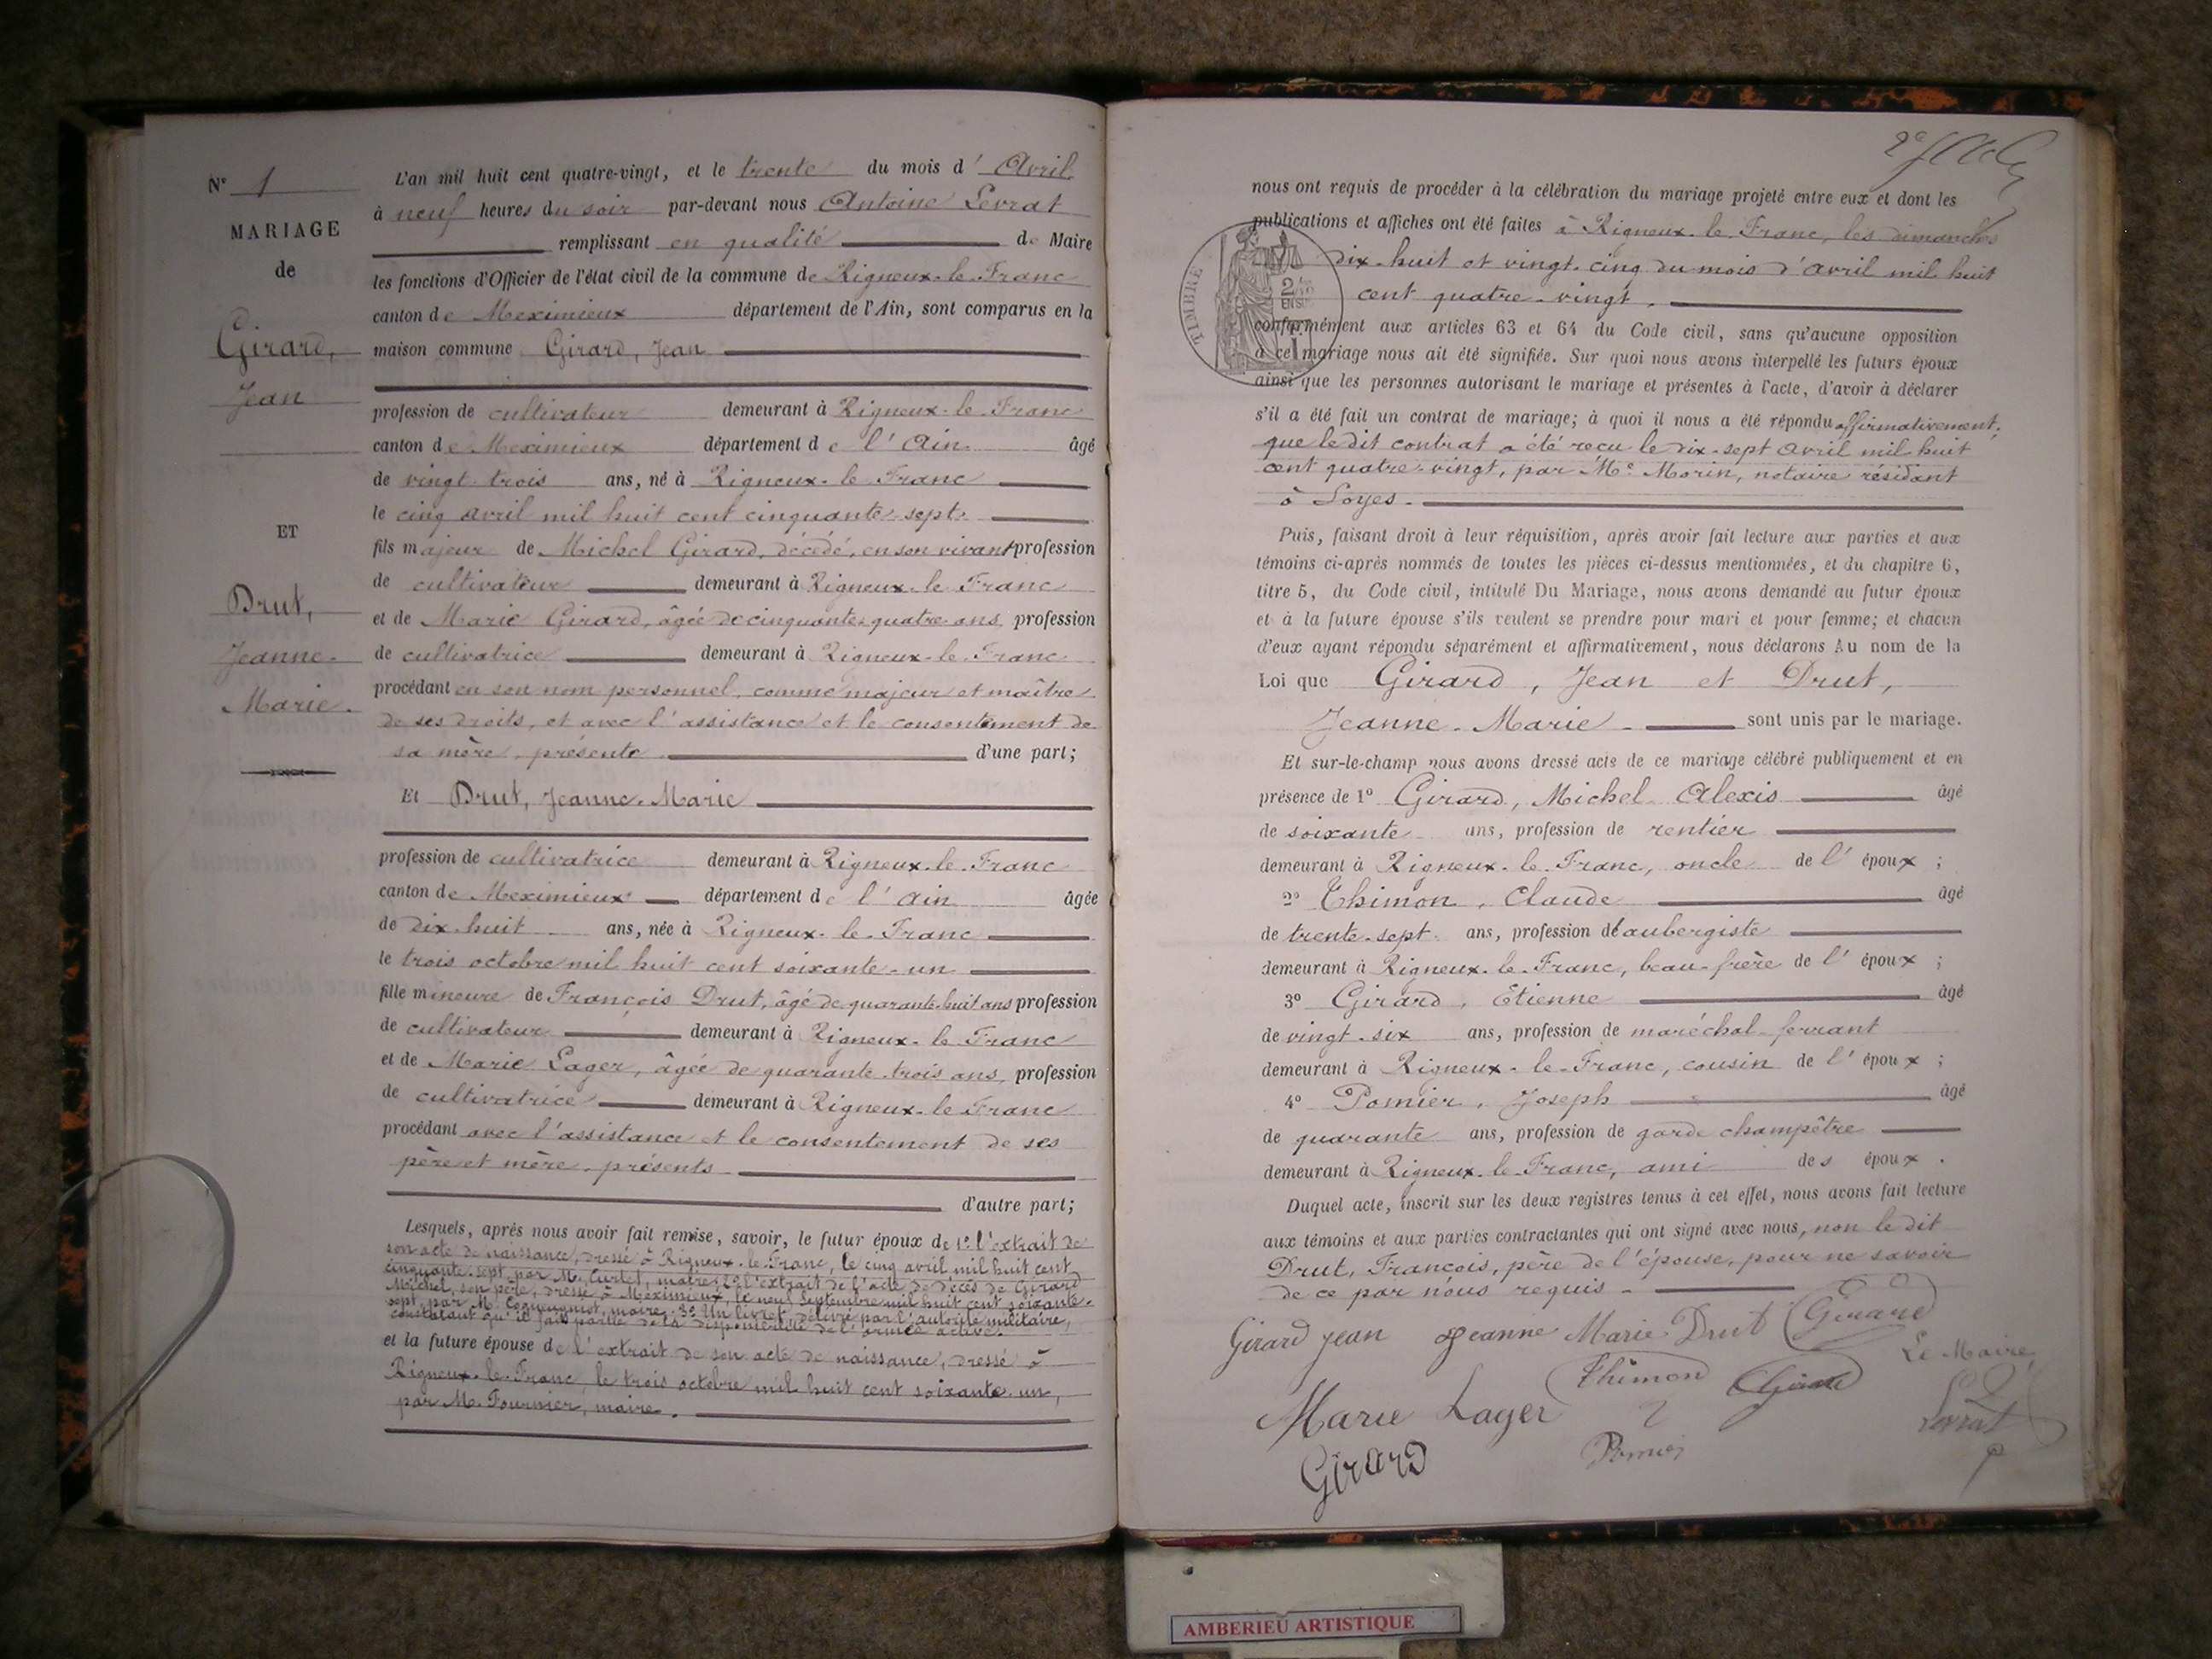 N° 1
MARIAGE
de
Girard,
Jean
ET
Drut,
Jeanne-
Marie.
L'an mil huit cent quatre-vingt, et le trente du mois d' Avril
à neuf heures du soir par-devant nous Antoine Levrat
remplissant en qualité de Maire
les fonctions d'Officier de l'état civil de la commune de Rigneux-le-Franc
canton de Meximieux département de l'Ain, sont comparus en la
maison commune Girard, Jean
profession de cultivateur demeurant à Rigneux-le-Franc
canton de Meximieux département de l'Ain âgé
de vingt trois ans, né à Rigneux-le-Franc
le cinq avril mil huit cent cinquante-sept
fils majeur de Michel Girard, décédé, en son vivant profession
de cultivateur demeurant à Rigneux-le-Franc
et de Marie Girard, âgée de cinquante-quatre ans, profession
de cultivatrice demeurant à Rigneux-le-Franc
procédant en son nom personnel, comme majeur et maître
de ses droits, et avec l'assistance et le consentement de
sa mère, présente d'une part;
Et Drut, Jeanne-Marie
profession de cultivatrice demeurant à Rigneux-le-Franc
canton de Meximieux département de l'Ain âgée
de dix-huit ans, née à Rigneux-le-Franc
le trois octobre mil huit cent soixante-un
fille mineure de François Drut, âgé de quarante-huit ans profession
de cultivateur demeurant à Rigneux-le-Franc
et de Marie Lager, âgée de quarante-trois ans, profession
de cultivatrice demeurant à Rigneux-le-Franc
procédant avec l'assistance et le consentement de ses
père et mère, présents
d'autre part;
Lesquels, après nous avoir fait remise, savoir, le futur époux de 1° l'extrait de
son acte de naissance, dressé à Rigneux-le-Franc, le cinq avril mil huit cent
cinquante-sept par M. Curtet, maire; 2° l'extrait de l'acte de décès de Girard
Michel, son père, dressé à Meximieux, le neuf Septembre mil huit cent soixante-
sept, par M. maire. 3° Un livret, délivré par l'autorité militaire,
constatant qu'il fait partie de la disponibilité de l'armée active.
et la future épouse de l'extrait de son acte de naissance, dressé à
Rigneux-le-Franc, le trois octobre mil huit cent soixante-un,
par M. Fournier, maire.
nous ont requis de procéder à la célébration du mariage projeté entre eux et dont les
publications et affiches ont été faites à Rigneux-le-Franc, les dimanches
dix-huit et vingt-cinq du mois d'avril mil huit
cent quatre-vingt.
TIMBRE
conformément aux articles 63 et 64 du Code civil, sans qu'aucune opposition
à ce mariage nous ait été signifiée. Sur quoi nous avons interpellé les futurs époux
ainsi que les personnes autorisant le mariage et présentes à l'acte, d'avoir à déclarer
s'il a été fait un contrat de mariage; à quoi il nous a été répondu affirmativement,
que le dit contrat a été reçu le dix-sept avril mil huit
cent quatre-vingt, par Me Morin, notaire résidant
à Loyes.
Puis, faisant droit à leur réquisition, après avoir fait lecture aux parties et aux
témoins ci-après nommés de toutes les pièces ci-dessus mentionnées, et du chapitre 6,
titre 5, du Code civil, intitulé Du Mariage, nous avons demandé au futur époux
et à la future épouse s'ils veulent se prendre pour mari et pour femme; et chacun
d'eux ayant répondu séparément et affirmativement, nous déclarons Au nom de la
Loi que Girard, Jean et Drut,
Jeanne-Marie sont unis par le mariage.
Et sur-le-champ nous avons dressé acte de ce mariage célébré publiquement et en
présence de 1° Girard, Michel-Alexis âgé
de soixante ans, profession de rentier
demeurant à Rigneux-le-Franc, oncle de l'époux;
2° Thimon, Claude âgé
de trente-sept ans, profession d'aubergiste
demeurant à Rigneux-le-Franc, beau-frère de l'époux;
3° Girard, Etienne âgé
de vingt-six ans, profession de maréchal-ferrant
demeurant à Rigneux-le-Franc, cousin de l'époux;
4° Pomier, Joseph âgé
de quarante ans, profession de garde champêtre
demeurant à Rigneux-le-Franc, ami des époux.
Duquel acte, inscrit sur les deux registres tenus à cet effet, nous avons fait lecture
aux témoins et aux parties contractantes qui ont signé avec nous, non le dit
Drut, François, père de l'épouse, pour ne savoir
de ce par nous requis.
Girard Jean Jeanne Marie Drut Girard
Le Maire,
Thimon Girard
Marie Lager Levrat
Girard Pomier
AMBERIEU ARTISTIQUE